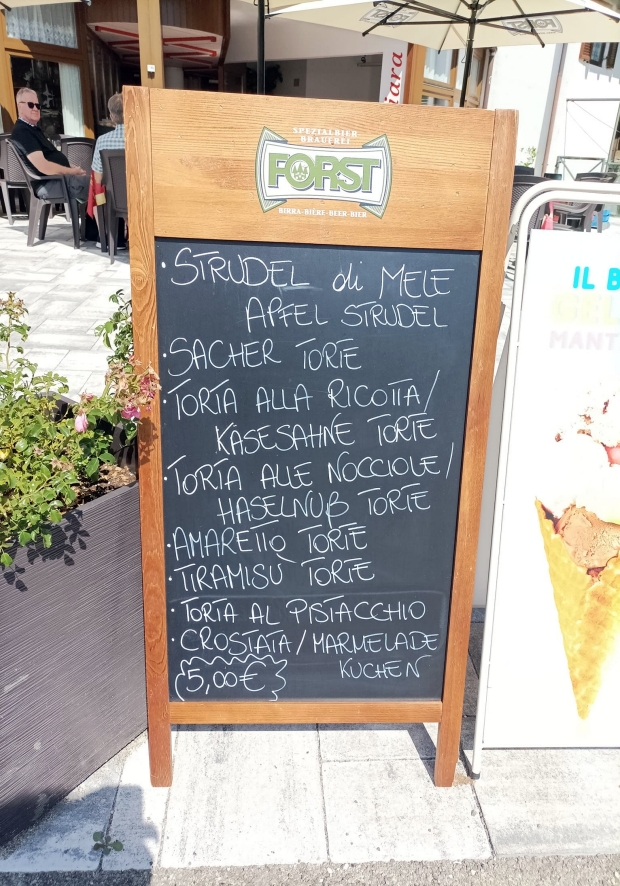 FORST
SPEZIALBIER-
BRAUEREI
FORST
BIRRA-BIÈRE-BEER-BIER
• STRUDEL di MELE
APFEL STRUDEL
• SACHER TORTE
• TORTA ALLA RICOTTA/
KÄSESAHNE TORTE
• TORTA ALLE NOCCIOLE/
HASELNUß TORTE
• AMARETTO TORTE
• TIRAMISÙ TORTE
• TORTA AL PISTACCHIO
• CROSTATA/MARMELADE
KUCHEN
5,00€
IL B
MANT